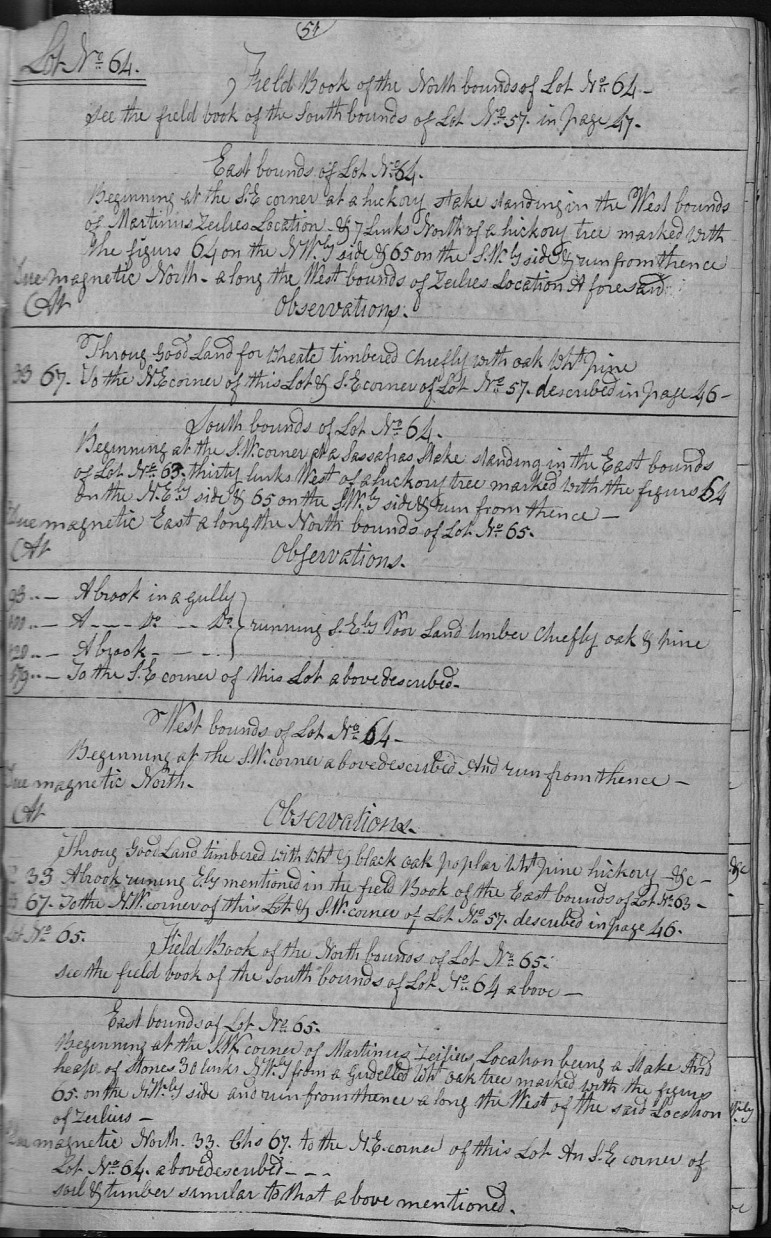 51
Lot No. 64.
Field Book of the North bounds of Lot No. 64 –
see the field book of the South bounds of Lot No. 57. in page 47.
East bounds of Lot No. 64.
Beginning at the S.E corner at a hickory stake standing in the West bounds
of Martinus Zeilies Location – & 7 Links North of a hickory tree marked with
the figurs 64 on the N.W.ly side & 65 on the S.W.ly side & run from thence
Due magnetic North – a long the West bounds of Zeilies Location A foresaid
At Observations.
Throug Good Land for Wheate timbered Chiefly with oak Wht pine
33 67. To the N.E corner of this Lot & S.E corner of Lot No. 57. described in page 46 –
South bounds of Lot No. 64.
Beginning at the S.W. corner at a Sassafras Stake standing in the East bounds
of Lot No. 63. thirty links West of a hickory tree marked with the figurs 64
on the N.E.ly side & 65 on the S.W.ly side & run from thence –
Due magnetic East a long the North bounds of Lot No. 65.
At Observations.
93 .. – A brook in a gully
100 .. – A – – Do – – Do running S.E.ly Poor Land timber Chiefly oak & pine
120 .. – A brook – – –
179 .. – To the S.E corner of this Lot above described –
West bounds of Lot No. 64 –
Beginning at the S.W. corner above described And run from thence –
Due magnetic North.
At Observations.
Throug Good Land timbered with Wht & black oak poplar Wht pine hickory &c –
33 A brook runing E.ly mentioned in the field Book of the East bounds of Lot No. 63 –
67. To the N.W. corner of this Lot & S.W. corner of Lot No. 57. described in page 46.
Lot No. 65. Field Book of the North bounds of Lot No. 65.
see the field book of the South bounds of Lot No. 64 above –
East bounds of Lot No. 65.
Beginning at the S.W. corner of Martinus Zeilius Location being a Stake And
heap of Stones 30 links N.W.ly from a Girdelled Wht oak tree marked with the figurs
65. on the N.W.ly side and run from thence a long the West of the said Location
of Zeilius –
Due magnetic North. 33. Chs 67. to the N.E. corner of this Lot An S.E corner of
Lot No. 64. above described – – –
soil & timber similar to that above mentioned.
&c